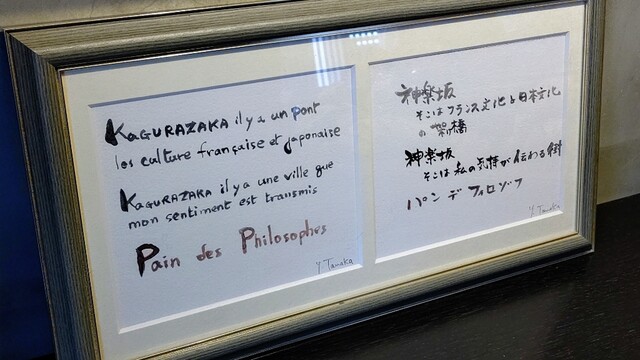 KAGURAZAKA il y a un pont
les culture française et japonaise
KAGURAZAKA il y a une ville que
mon sentiment est transmis
Pain des Philosophes
Y Tanaka
神楽坂
そこはフランス文化と日本文化
の架け橋
神楽坂
そこは私の気持が伝わる街
パン デ フィロゾフ
Y. Tanaka